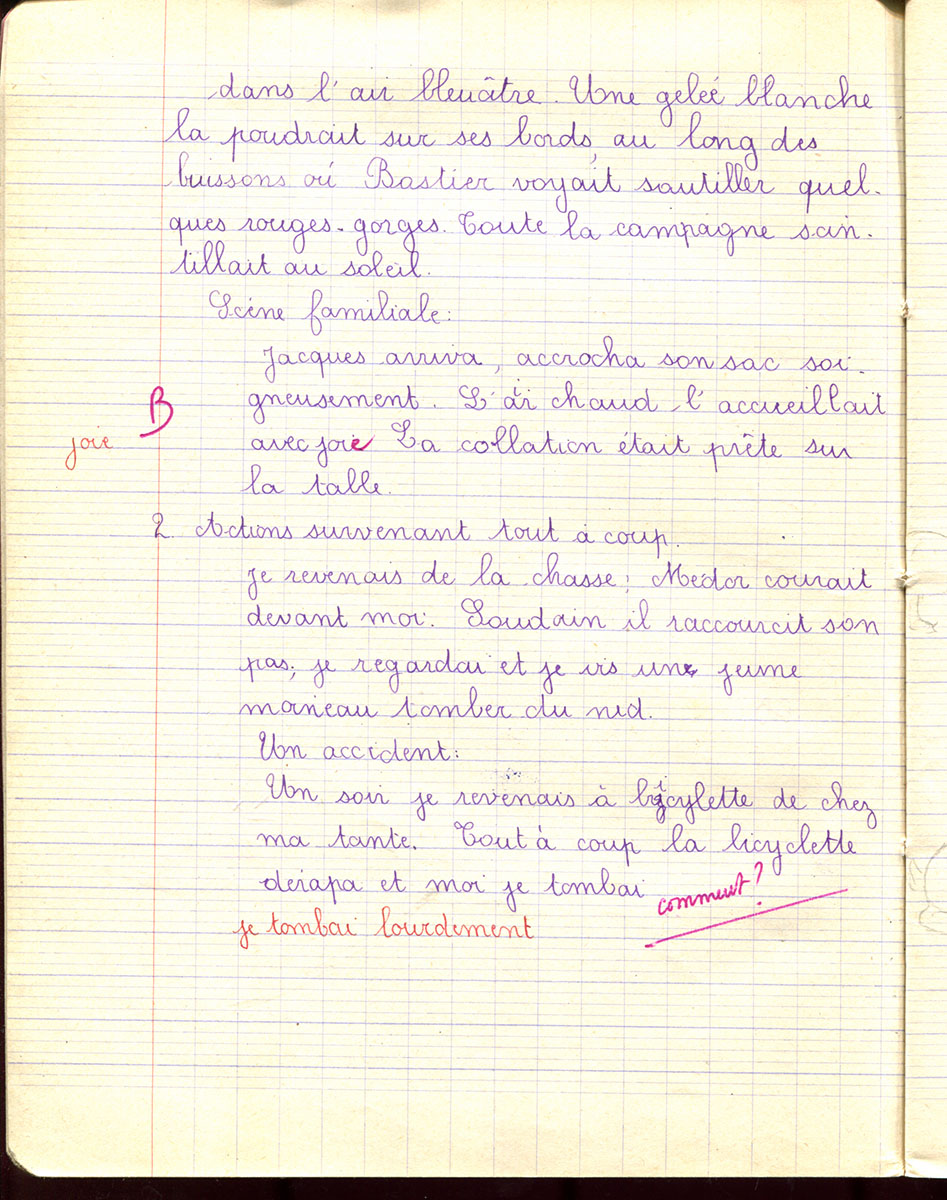 dans l'air bleuâtre. Une gelée blanche
la poudrait sur ses bords, au long des
buissons où Bastier voyait sautiller quel-
ques rouges-gorges. Toute la campagne scin-
tillait au soleil.
Scène familiale:
Jacques arriva, accrocha son sac soi-
gneusement. L'air chaud l'accueillait
B
joie
avec joie La collation était prête sur
la table.
2. Actions survenant tout à coup.
Je revenais de la chasse; Médor courait
devant moi. Soudain il raccourcit son
pas; je regardai et je vis un jeune
moineau tomber du nid.
Un accident:
Un soir je revenais à bicylette de chez
ma tante. Tout à coup la bicyclette
dérapa et moi je tombai
comment?
je tombai lourdement